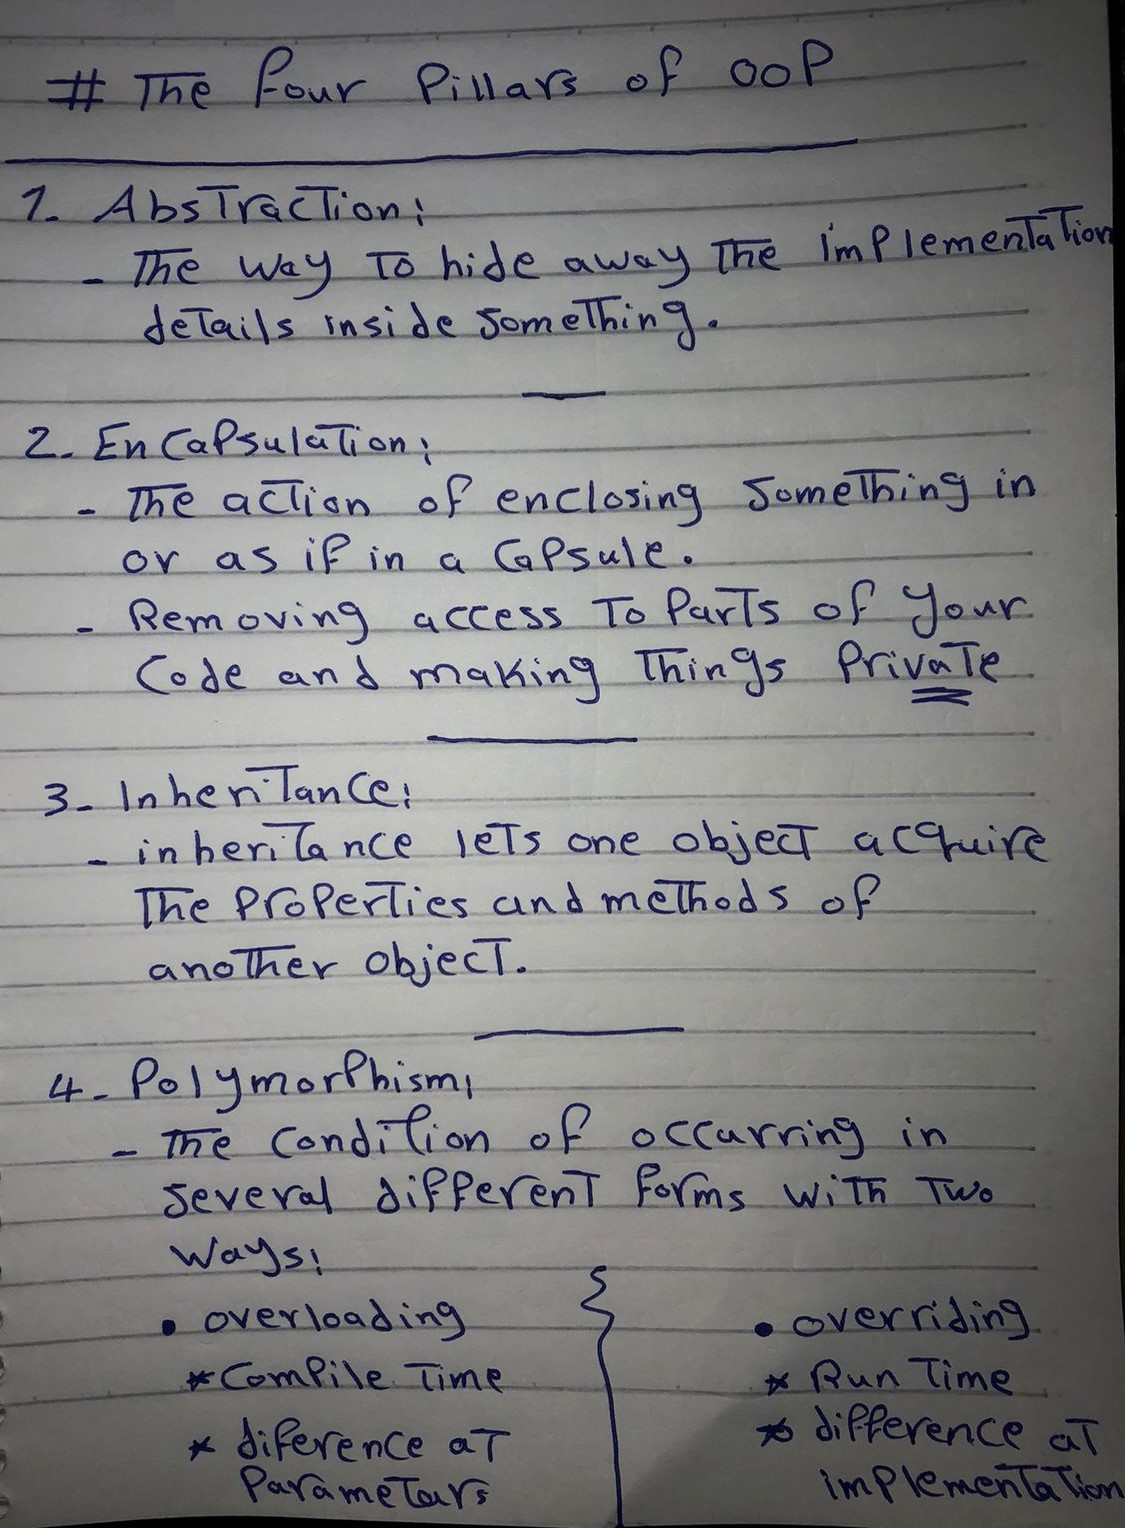 # The Four Pillars of OOP
1. Abstraction:
- The way to hide away the implementation
details inside something.
2- Encapsulation:
- The action of enclosing something in
or as if in a capsule.
- Removing access to parts of your
code and making things private
3- Inheritance:
- inheritance lets one object acquire
the properties and methods of
another object.
4- Polymorphism:
- The condition of occurring in
several different forms with two
ways:
• overloading
* Compile Time
* diference at
parametars
• overriding
* Run Time
* difference at
implementation